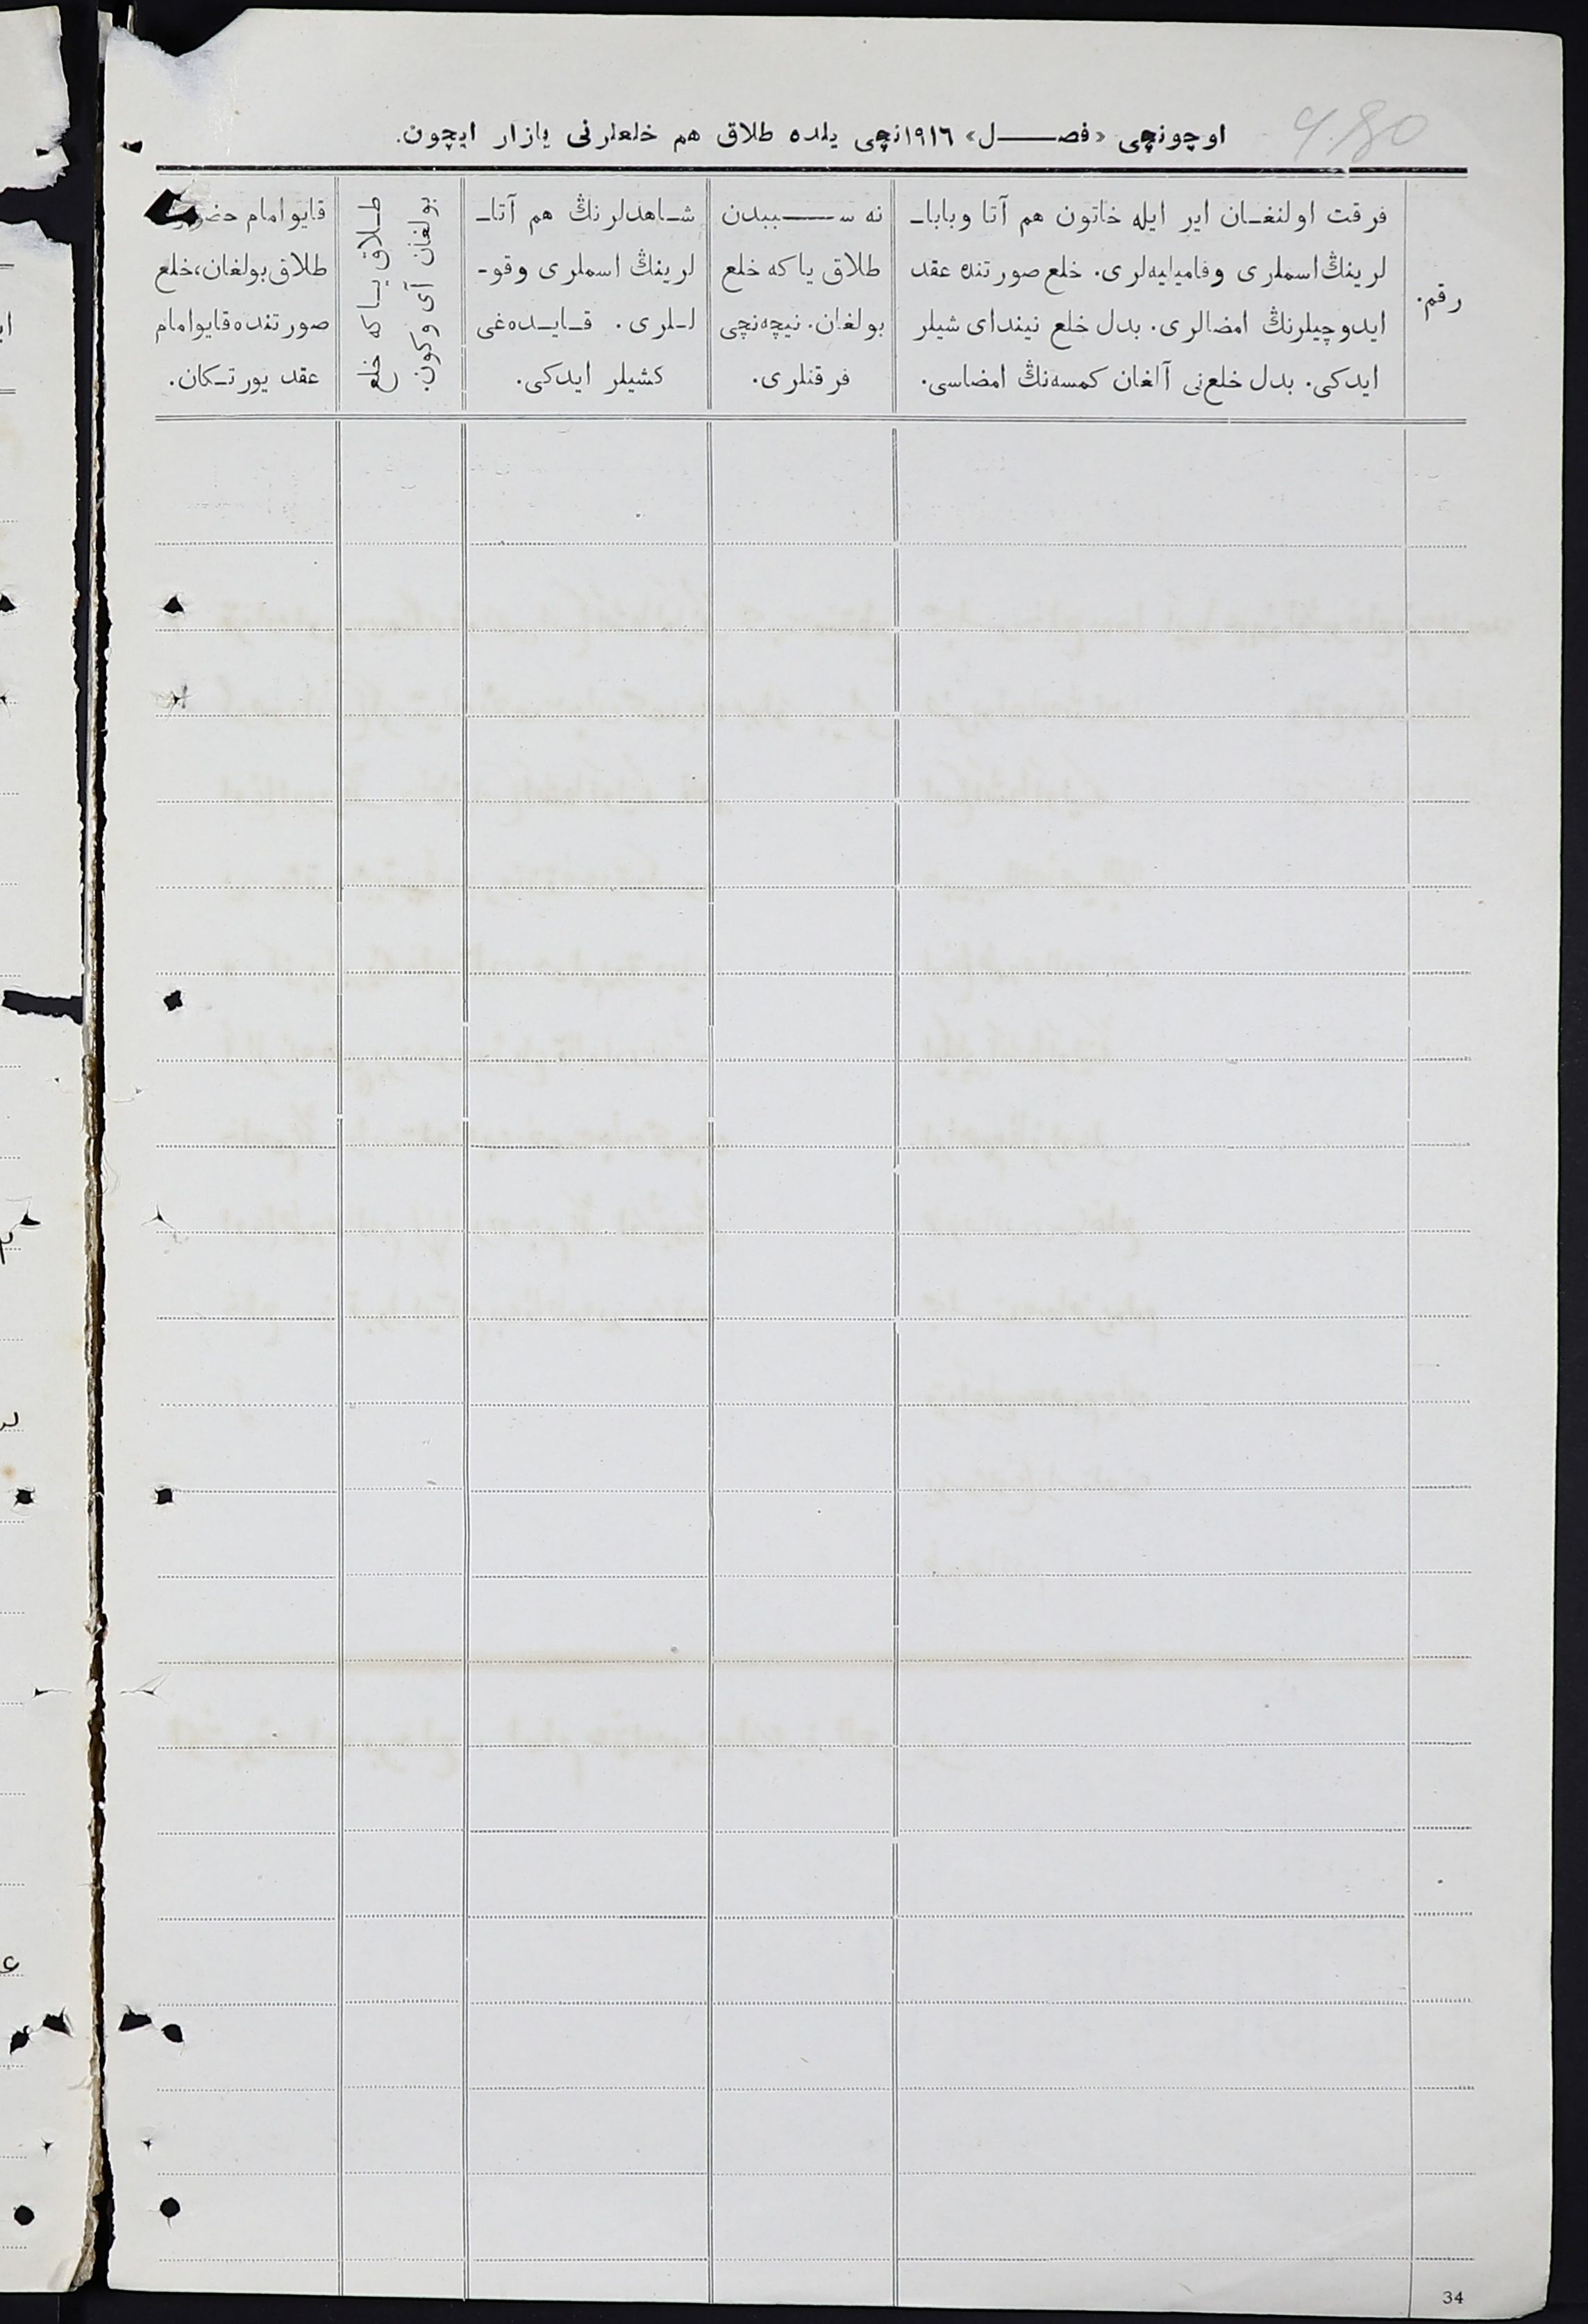 اوچونچی «فصل» ١٩١٦نچی یلده طلاق هم خلعلرنی یازار ایچون.
رقم.
فرقت اولنغان ایر ایله خاتون هم آتا وبابا-
لرینڭ اسملری وفامیلیه‌لری. خلع صورتنده عقد
ایدوچیلرنڭ امضالری. بدل خلع نیندای شیلر
ایدکی. بدل خلع‌نی آلغان کمسه‌نڭ امضاسی.
نه سببدن
طلاق یا که خلع
بولغان. نیچه‌نچی
فرقتلری.
شاهدلرنڭ هم آتا-
لرینڭ اسملری وقو-
للری. قایده‌غی
کشیلر ایدکی.
طلاق یا که خلع
بولغان آی وکون.
قایو امام
طلاق بولغان، خلع
صورتنده قایو امام
عقد یورتکان.
34